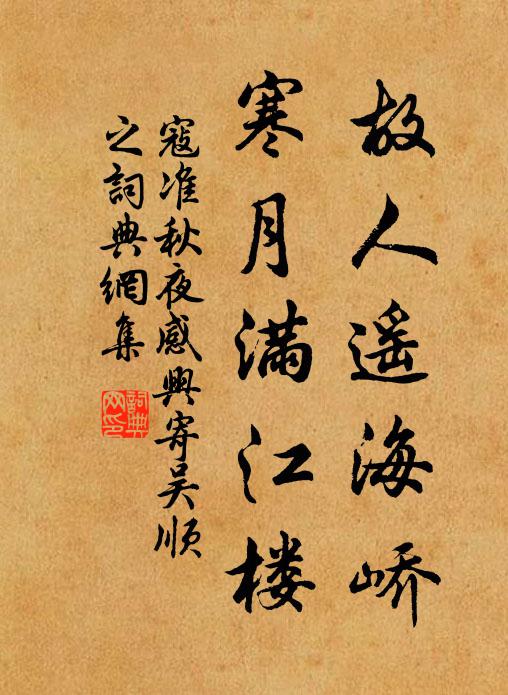 故人遥海峤
寒月满江楼
寇准秋夜感興寄吴顺
之詞典網集
詞典网印